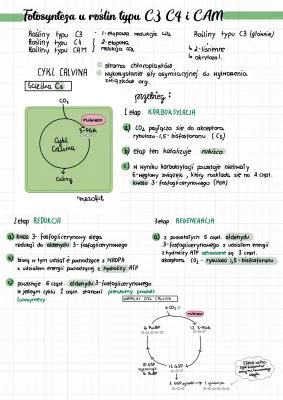 Fotosynteza u roślin typu C3 C4 i CAM
Rośliny typu C3 - 1-etapowa redukcja CO₂
Rośliny typu C4
Rośliny typu CAM
2-etapowa
redukcja CO₂
Rośliny typu C3 (głównie)
↳ 2-liścienne
↳ okrytozal.
CYKL CALVINA
stroma chloroplastów
wykorzystanie siły asymilacyjnej do wytworzenia
związków org.
Ścieżka C3
CO₂
rubisco
3-PGA
Cykl
Calvina
Cukry
mezofil
przebieg:
I etap KARBOKSYLACJA
a) CO₂ przyłącza się do akceptora
rybulozo-1,5-bisfosforanu (C5)
b) etap ten katalizuje rubisco
c) w wyniku karboksylacji powstaje nietrwały
6-węglowy związek, który rozkłada się na 2 cząst.
kwasu 3-fosfoglicerynowego (PGA)
2 etap REDUKCJA
a) kwas 3-fosfoglicerynowy ulega
redukcji do aldehydu 3-fosfoglicerynowego
b) biorą w tym udział e⁻ pochodzące z NADPH
z udziałem energii pochodzącej z hydrolizy ATP
c) powstaje 6 cząst. aldehydu 3-fosfoglicerynowego
w jednym cyklu 1 cząst. stanowi pierwotny produkt
fotosyntezy
3 etap REGENERACJA
a) z pozostałych 5 cząst. aldehydu
3-fosfoglicerynowego z udziałem energii
z hydrolizy ATP odtwarzane są 3 cząst.
akceptora CO₂ - rybulozo 1,5-bisfosforanu
6 CO₂
rubisco
6 RuBP
12 3-PGA
12 G3P
1 glukoza